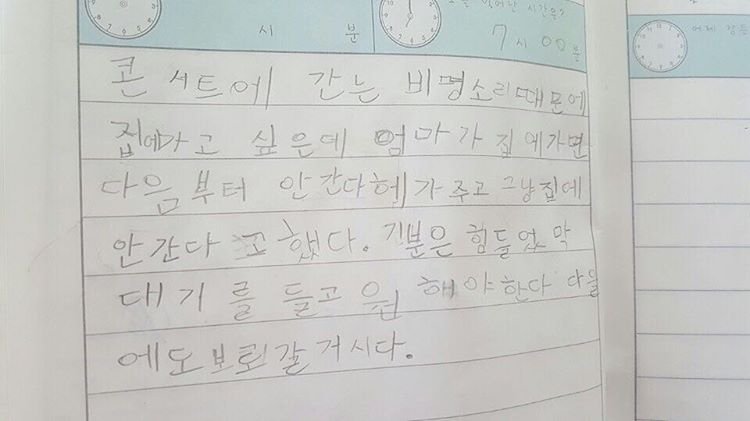 시 분
7시 00분
콘서트에 간는 비명소리때문에
집에가고 싶은데 엄마가 집에가면
다음부터 안간다헤가주고 그냥집에
안간다고했다. 기분은 힘들었 막
대기를 들고 응원 해야한다 다을
에도 보러갈거시다.